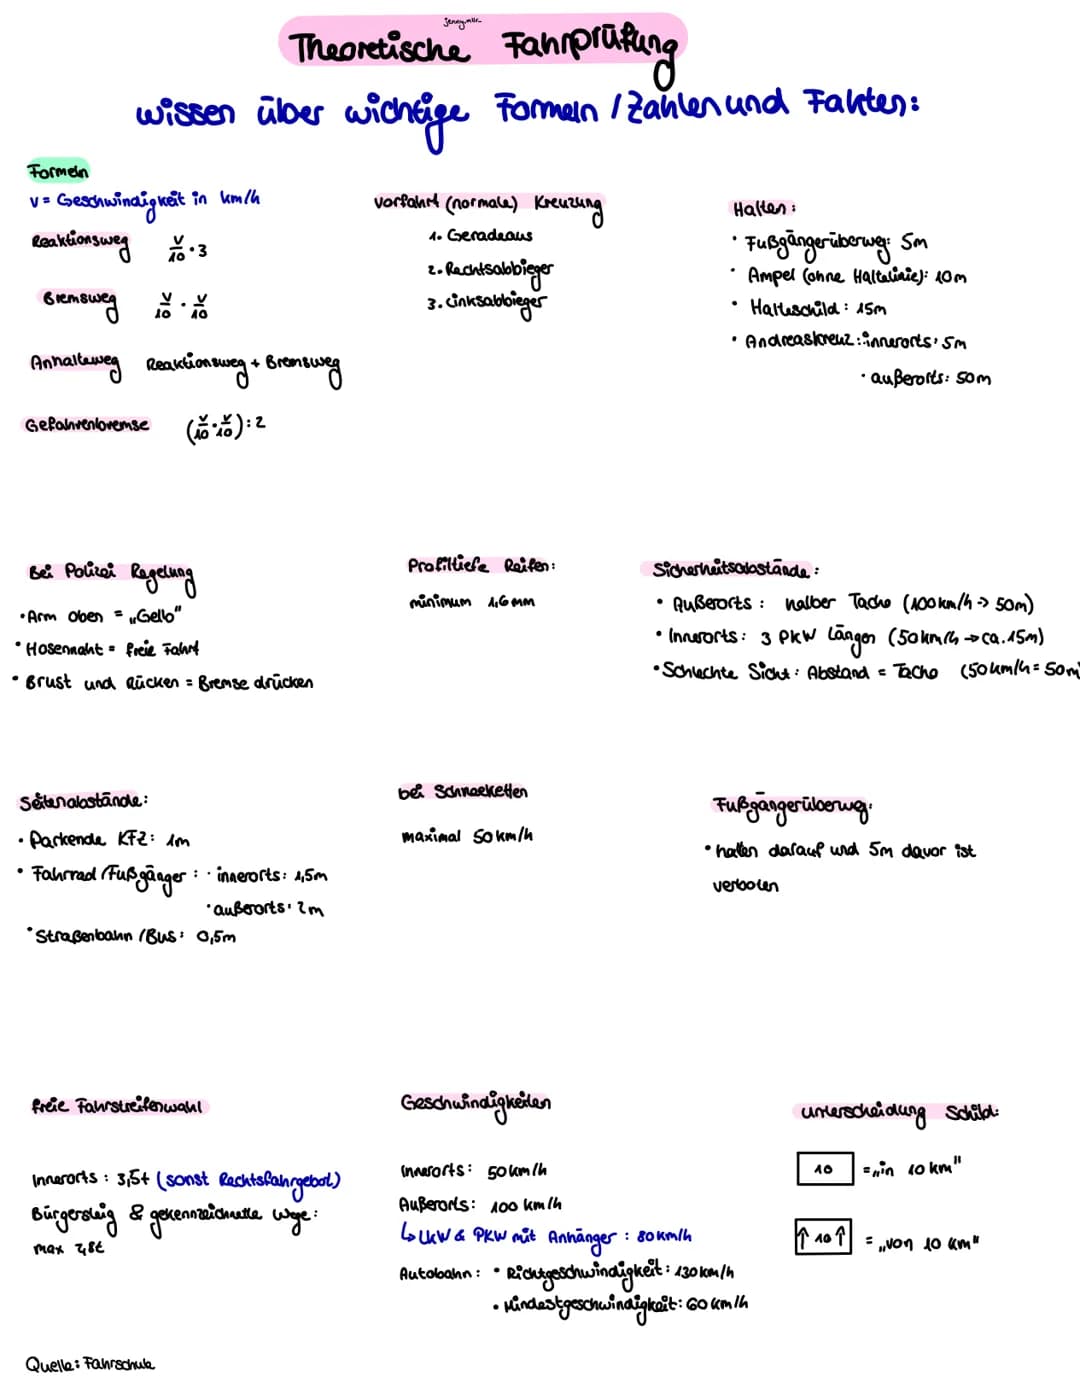 jenny.mllr_
Theoretische Fahrprüfung
wissen über wichtige Formeln / Zahlen und Fakten:
Formeln
v = Geschwindigkeit in km/h
Reaktionsweg v/10 · 3
Bremsweg v/10 · v/10
Anhalteweg Reaktionsweg + Bremsweg
Gefahrenbremse (v/10 · v/10) : 2
Vorfahrt (normale) Kreuzung
1. Geradeaus
2. Rechtsabbieger
3. Linksabbieger
Halten:
• Fußgängerüberweg: 5m
• Ampel (ohne Haltelinie): 10m
• Halteschild: 15m
• Andreaskreuz: • innerorts: 5m
• außerorts: 50m
Bei Polizei Regelung
• Arm oben = „Gelb"
• Hosennaht = freie Fahrt
• Brust und Rücken = Bremse drücken
Profiltiefe Reifen:
minimum 1,6 mm
Sicherheitsabstände:
• Außerorts: halber Tacho (100 km/h -> 50m)
• Innerorts: 3 PKW Längen (50 km/h -> ca. 15m)
• Schlechte Sicht: Abstand = Tacho (50 km/h = 50m
Seitenabstände:
• Parkende KFZ: 1m
• Fahrrad/Fußgänger: • innerorts: 1,5m
• außerorts: 2m
• Straßenbahn / Bus: 0,5m
bei Schneeketten
maximal 50 km/h
Fußgängerüberweg:
• halten darauf und 5m davor ist
verboten
freie Fahrstreifenwahl
Innerorts: 3,5t (sonst Rechtsfahrgebot)
Bürgersteig & gekennzeichnete Wege:
max 2,8t
Geschwindigkeiten
Innerorts: 50 km/h
Außerorts: 100 km/h
↳ LKW & PKW mit Anhänger: 80 km/h
Autobahn: • Richtgeschwindigkeit: 130 km/h
• Mindestgeschwindigkeit: 60 km/h
unterscheidung Schild:
10 = „in 10 km"
↑ 10 ↑ = „von 10 km"
Quelle: Fahrschule